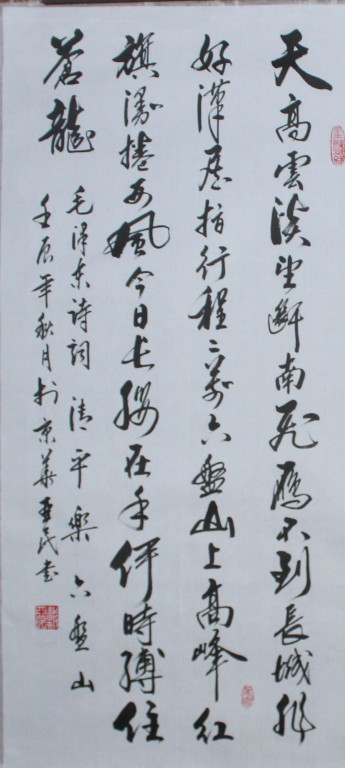 天高雲淡望斷南飛雁不到長城非
好漢屈指行程二萬六盤山上高峰紅
旗漫捲西風今日長纓在手何時縛住
蒼龍
毛澤東詩詞 清平樂 六盤山
壬辰年秋月於京華 民書